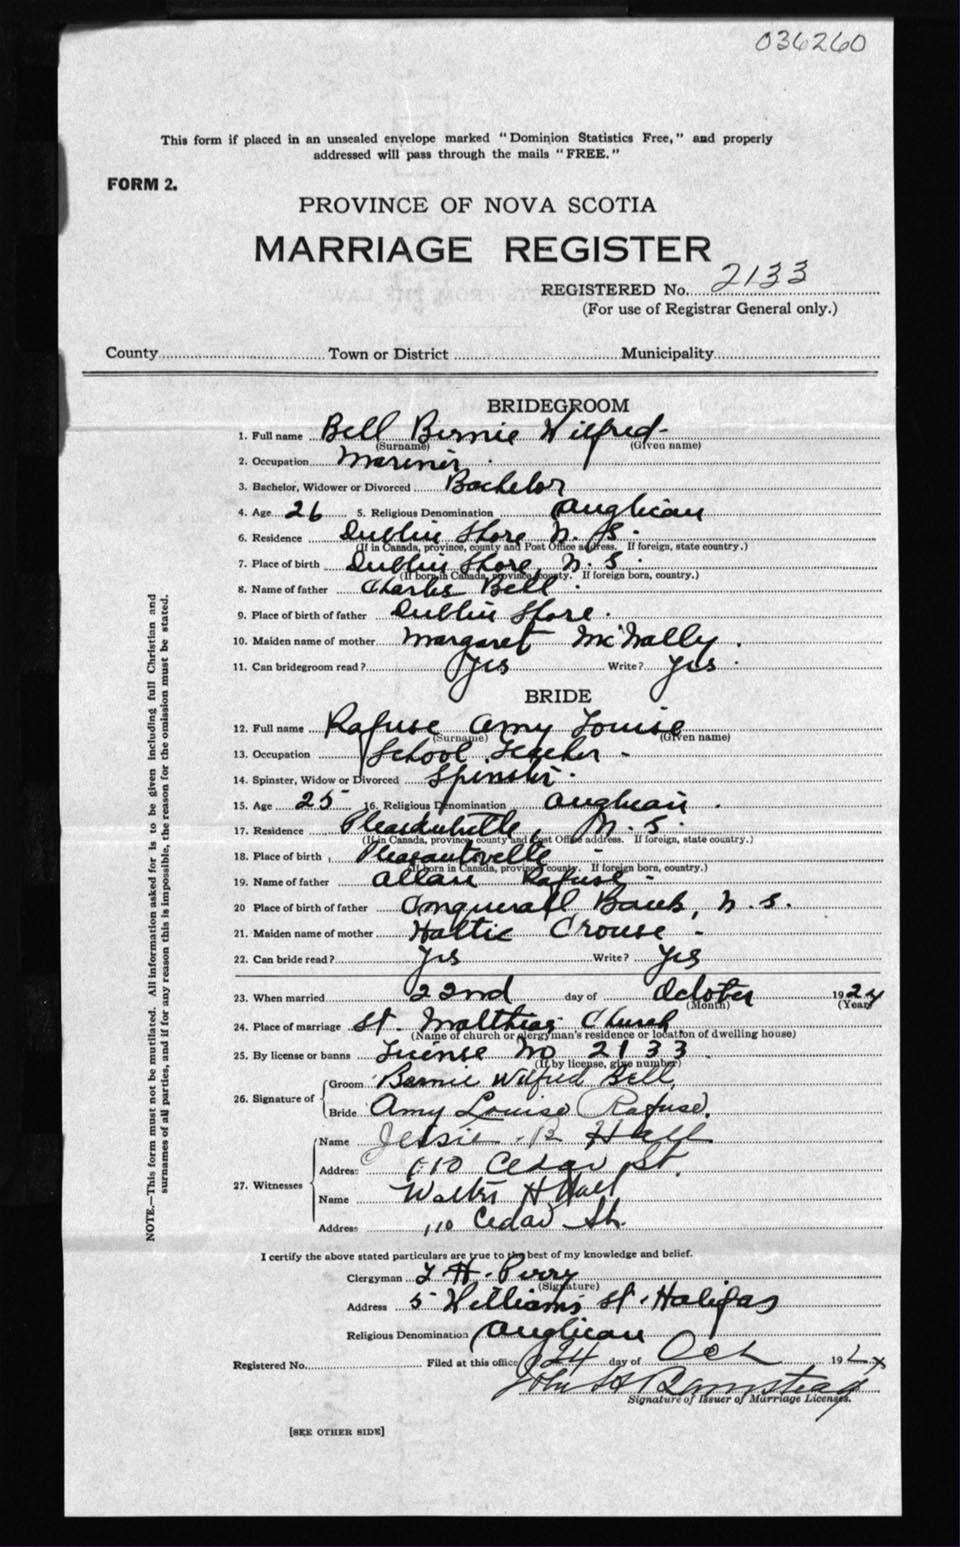 036260
This form if placed in an unsealed envelope marked "Dominion Statistics Free," and properly
addressed will pass through the mails "FREE."
FORM 2.
PROVINCE OF NOVA SCOTIA
MARRIAGE REGISTER
REGISTERED No. 2133
(For use of Registrar General only.)
County Town or District Municipality
BRIDEGROOM
1. Full name Bell Bernie Wilfred
(Surname) (Given name)
2. Occupation Mariner
3. Bachelor, Widower or Divorced Bachelor
4. Age 26 5. Religious Denomination Anglican
6. Residence Dublin Shore N.S.
(If in Canada, province, county and Post Office address. If foreign, state country.)
7. Place of birth Dublin Shore, N.S.
(If born in Canada, province county. If foreign born, country.)
8. Name of father Charles Bell
9. Place of birth of father Dublin Shore.
10. Maiden name of mother Margaret McNally.
11. Can bridegroom read? Yes Write? Yes.
BRIDE
12. Full name Rafuse Amy Louise
(Surname) (Given name)
13. Occupation School Teacher
14. Spinster, Widow or Divorced Spinster.
15. Age 25 16. Religious Denomination Anglican.
17. Residence N.S.
(If in Canada, province, county and Post Office address. If foreign, state country.)
18. Place of birth Pleasantville
(If born in Canada, province county. If foreign born, country.)
19. Name of father Allan Rafuse
20 Place of birth of father Conquerall Bank, N.S.
21. Maiden name of mother Hattie Crouse
22. Can bride read? Yes Write? Yes
23. When married 22nd day of October 1924
(Month) (Year)
24. Place of marriage St. Matthias Church
(Name of church or clergyman's residence or location of dwelling house)
25. By license or banns License No 2133
(If by license, give number)
26. Signature of Groom Bernie Wilfred Bell,
Bride Amy Louise Rafuse.
27. Witnesses Name Jessie R Hall
Address 110 Cedar St.
Name Walter H Hall
Address 110 Cedar St.
I certify the above stated particulars are true to the best of my knowledge and belief.
Clergyman H. Perry
(Signature)
Address 5 Williams St. Halifax
Religious Denomination Anglican
Registered No. Filed at this office 24 day of Oct 192
John
Signature of Issuer of Marriage Licenses.
[SEE OTHER SIDE]
NOTE.—This form must not be mutilated. All information asked for is to be given including full Christian and
surnames of all parties, and if for any reason this is impossible, the reason for the omission must be stated.